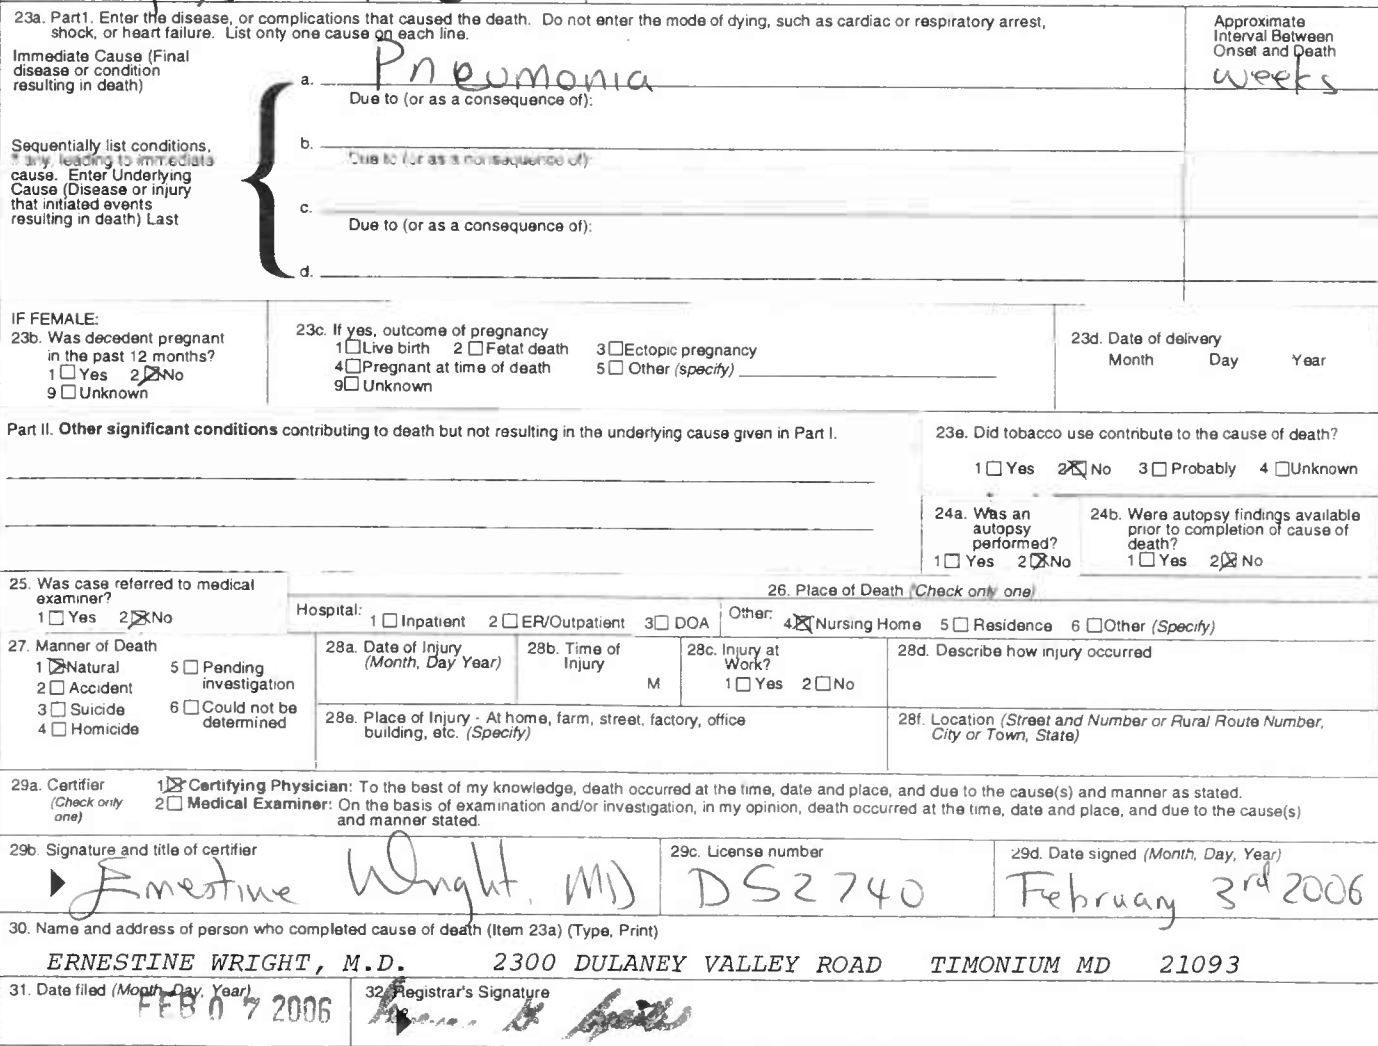 23a. Part1. Enter the disease, or complications that caused the death. Do not enter the mode of dying, such as cardiac or respiratory arrest,
shock, or heart failure. List only one cause on each line.
Approximate
Interval Between
Onset and Death
Immediate Cause (Final
disease or condition
resulting in death)
a. Pneumonia
weeks
Due to (or as a consequence of):
Sequentially list conditions,
if any, leading to immediate
cause. Enter Underlying
Cause (Disease or injury
that initiated events
resulting in death) Last
b.
Due to (or as a consequence of):
c.
Due to (or as a consequence of):
d.
IF FEMALE:
23b. Was decedent pregnant
in the past 12 months?
1 ☐ Yes 2 ☒ No
9 ☐ Unknown
23c. If yes, outcome of pregnancy
1 ☐ Live birth 2 ☐ Fetal death 3 ☐ Ectopic pregnancy
4 ☐ Pregnant at time of death 5 ☐ Other (specify)
9 ☐ Unknown
23d. Date of delivery
Month Day Year
Part II. Other significant conditions contributing to death but not resulting in the underlying cause given in Part I.
23e. Did tobacco use contribute to the cause of death?
1 ☐ Yes 2 ☒ No 3 ☐ Probably 4 ☐ Unknown
24a. Was an
autopsy
performed?
1 ☐ Yes 2 ☒ No
24b. Were autopsy findings available
prior to completion of cause of
death?
1 ☐ Yes 2 ☒ No
25. Was case referred to medical
examiner?
1 ☐ Yes 2 ☒ No
26. Place of Death (Check only one)
Hospital: 1 ☐ Inpatient 2 ☐ ER/Outpatient 3 ☐ DOA Other: 4 ☒ Nursing Home 5 ☐ Residence 6 ☐ Other (Specify)
27. Manner of Death
1 ☒ Natural 5 ☐ Pending
investigation
2 ☐ Accident
3 ☐ Suicide 6 ☐ Could not be
determined
4 ☐ Homicide
28a. Date of Injury
(Month, Day Year)
28b. Time of
Injury
M
28c. Injury at
Work?
1 ☐ Yes 2 ☐ No
28d. Describe how injury occurred
28e. Place of Injury - At home, farm, street, factory, office
building, etc. (Specify)
28f. Location (Street and Number or Rural Route Number,
City or Town, State)
29a. Certifier
(Check only
one)
1 ☒ Certifying Physician: To the best of my knowledge, death occurred at the time, date and place, and due to the cause(s) and manner as stated.
2 ☐ Medical Examiner: On the basis of examination and/or investigation, in my opinion, death occurred at the time, date and place, and due to the cause(s)
and manner stated.
29b. Signature and title of certifier
Ernestine Wright, MD
29c. License number
D52740
29d. Date signed (Month, Day, Year)
February 3rd 2006
30. Name and address of person who completed cause of death (Item 23a) (Type, Print)
ERNESTINE WRIGHT, M.D. 2300 DULANEY VALLEY ROAD TIMONIUM MD 21093
31. Date filed (Month, Day, Year)
FEB 07 2006
32. Registrar's Signature